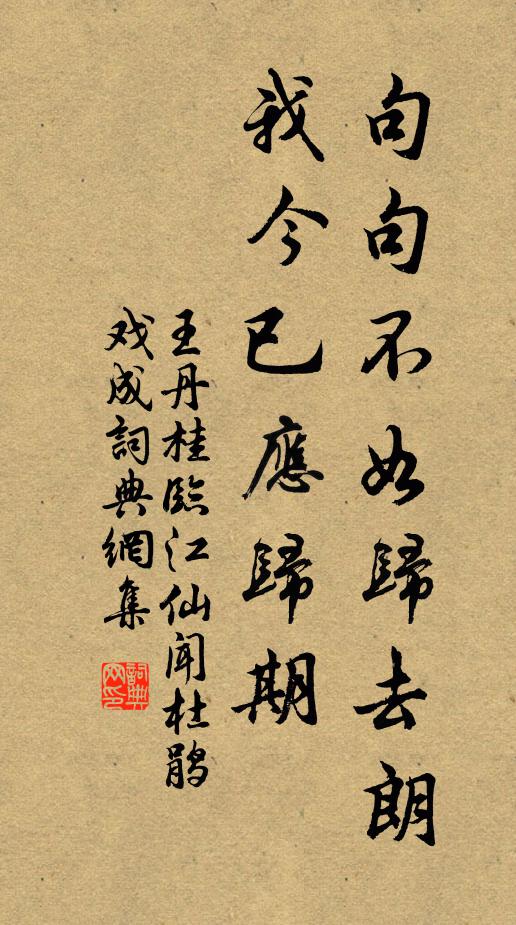 句句不如歸去朗
我今已應歸期
王丹桂臨江仙闻杜鹃
戏成詞典網集
詞典网印